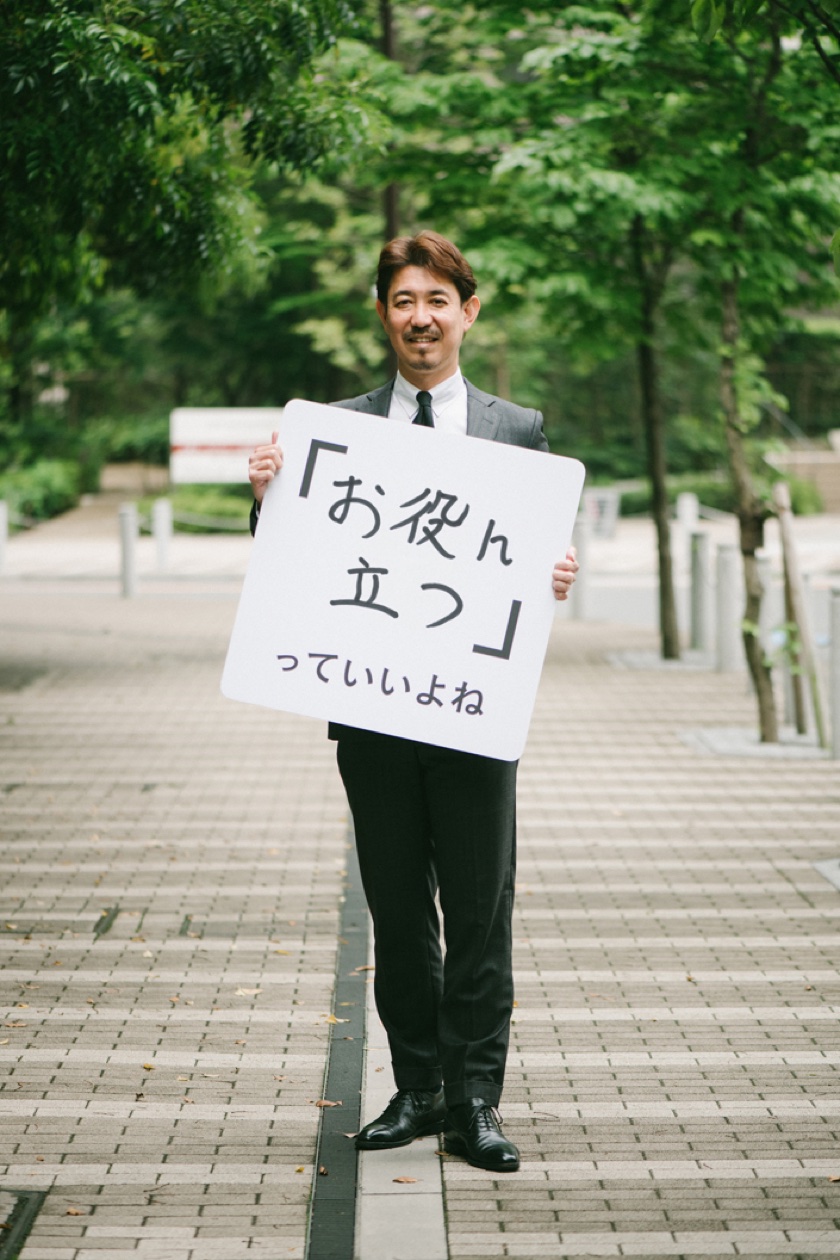 「お役ん
立つ」
っていいよね